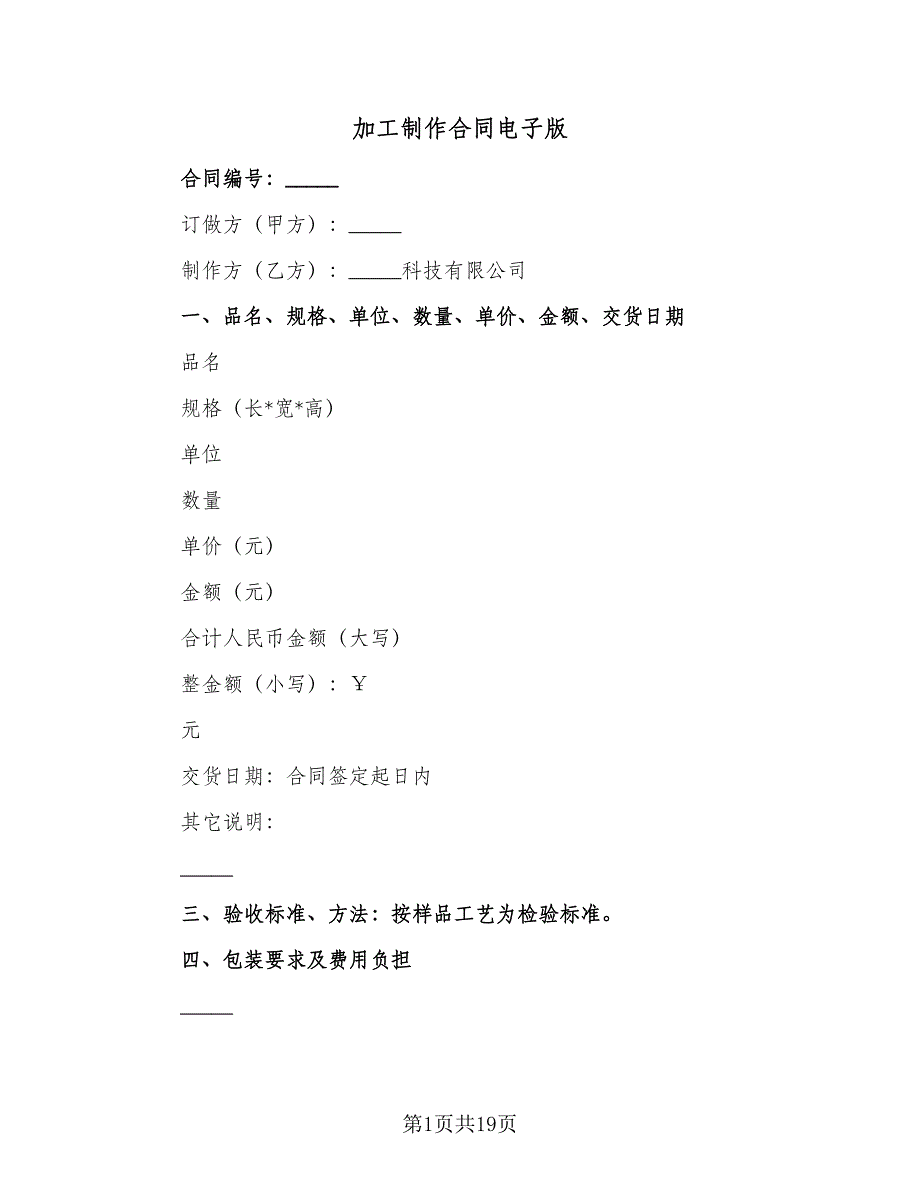 加工制作合同电子版
合同编号：_____
订做方（甲方）：_____
制作方（乙方）：_____科技有限公司
一、品名、规格、单位、数量、单价、金额、交货日期
品名
规格（长*宽*高）
单位
数量
单价（元）
金额（元）
合计人民币金额（大写）
整金额（小写）：￥
元
交货日期：合同签定起日内
其它说明：
_____
三、验收标准、方法：按样品工艺为检验标准。
四、包装要求及费用负担
_____
第1页共19页